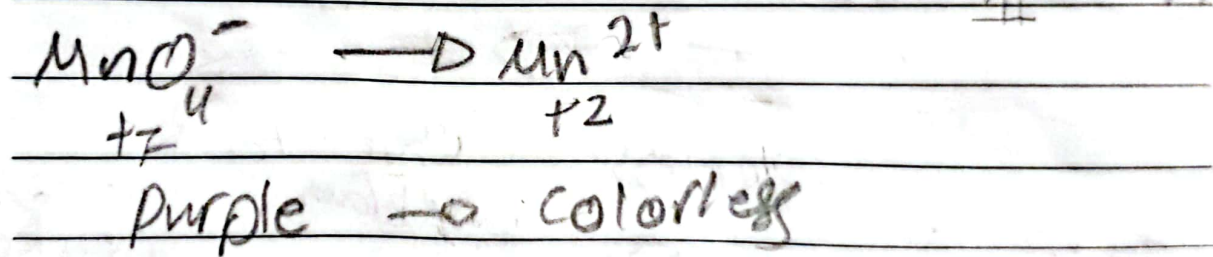 MnO₄⁻ → Mn²⁺
+7 +2
purple → colorless